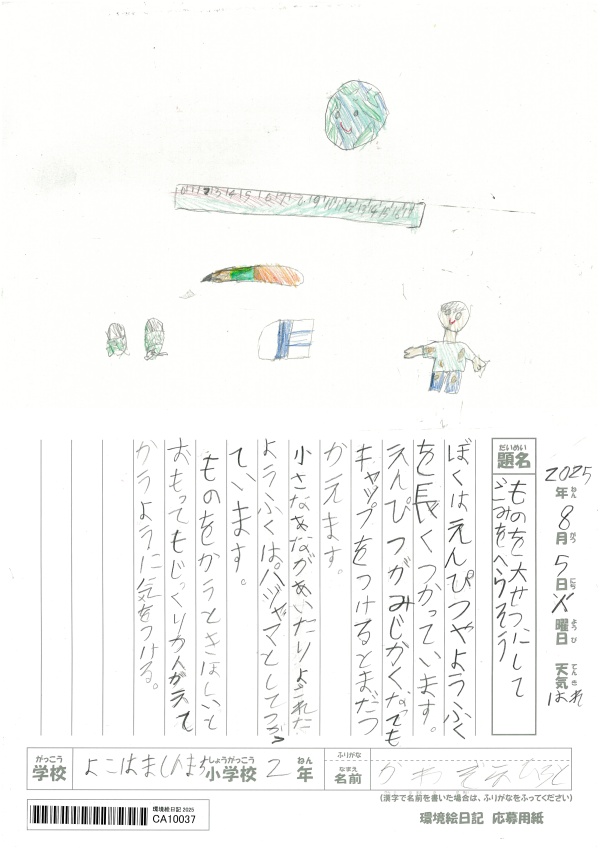 2025年8月5日火曜日 天気はれ
ねん がつ にち ようび てんき
だいめい
題名
ものを大せつにして
ごみをへらそう
ぼくはえんぴつやようふく
を長くつかっています。
えんぴつがみじかくなっても
キャップをつけるとまだつ
かえます。
小さなあながあいたりよごれた
ようふくはパジャマとしてつかっ
ています。
ものをかうときほしいと
おもってもじっくりかんがえて
かうように気をつける。
がっこう
学校
しょうがっこう
小学校 2年
ねん
ふりがな
なまえ
名前
(漢字で名前を書いた場合は、ふりがなをふってください)
環境絵日記 2025
CA10037
環境絵日記 応募用紙